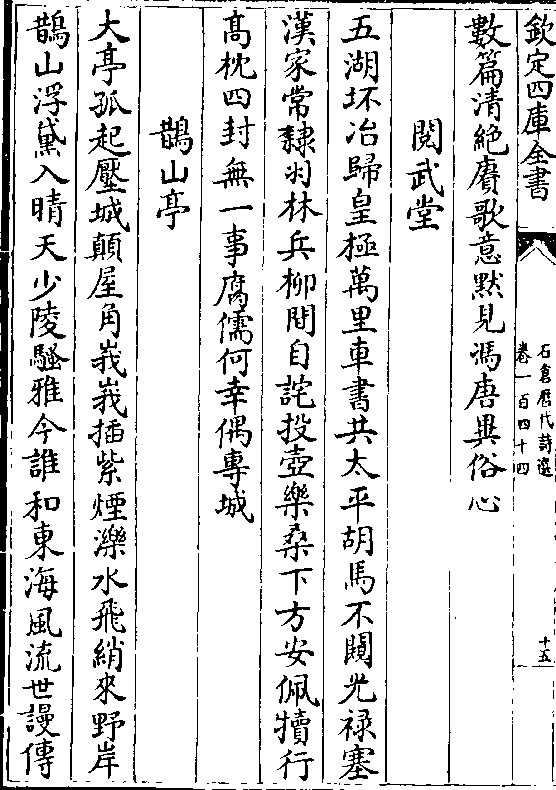 欽定四庫全書
石倉歷代詩選
卷一百四十四
十五
數篇清絶賡歌意默見馮唐異俗心
閱武堂
五湖坏冶歸皇極萬里車書共太平胡馬不闚光禄塞
漢家常隸羽林兵柳間自詫投壺樂桑下方安佩犢行
髙枕四封無一事腐儒何幸偶專城
鵲山亭
大亭孤起壓城顛屋角峩峩插紫煙濼水飛綃來野岸
鵲山浮黛入晴天少陵騷雅今誰和東海風流世謾傳